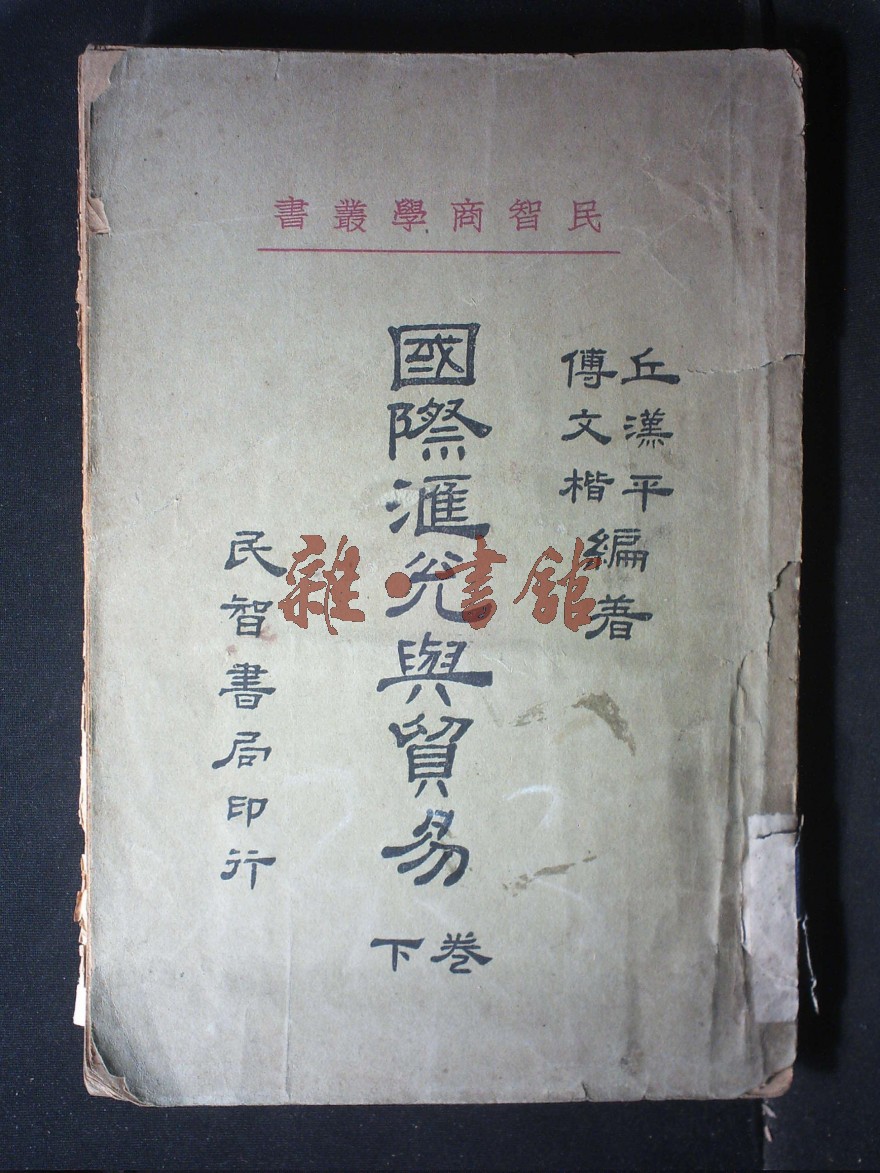 民智商學叢書
丘漢平
傅文楷
編著
國際滙兌與貿易
卷下
民智書局印行
雜·書館